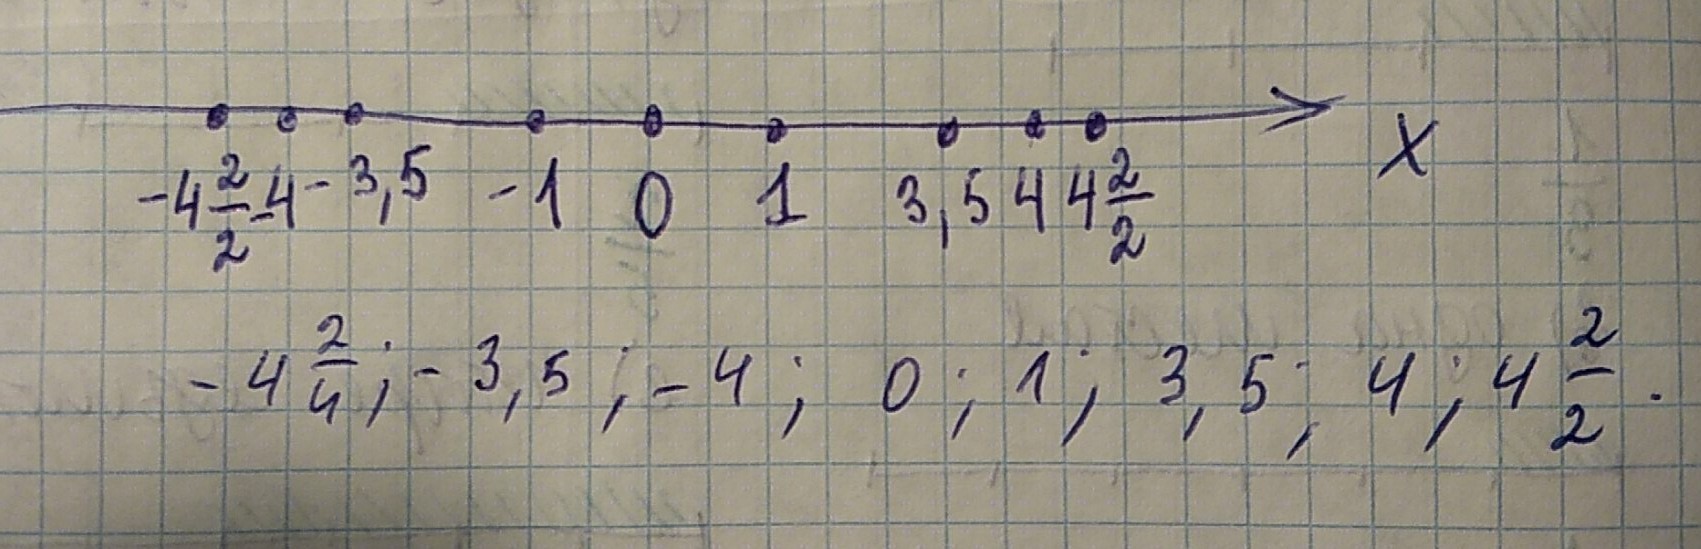 -4 2/2 -4 -3,5 -1 0 1 3,5 4 4 2/2 X
-4 2/4; -3,5; -4; 0; 1; 3,5; 4; 4 2/2.